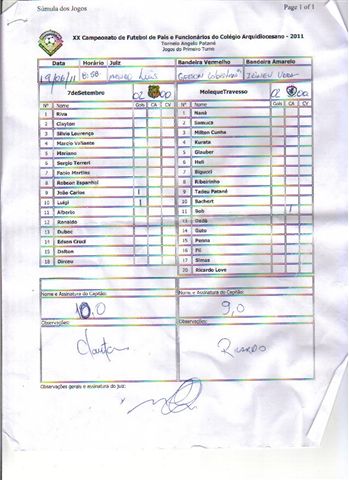 Súmula dos Jogos Page 1 of 1
XX Campeonato de Futebol de Pais e Funcionários do Colégio Arquidiocesano - 2011
Torneio Angelo Patané
Jogos do Primeiro Turno
Data Horário Juiz Bandeira Vermelho Bandeira Amarelo
19/06/11 8:50 Luis
7deSetembro 02 00 MolequeTravesso 02 00
Nº Nome Gols CA CV Nº Nome Gols CA CV
1 Riva 1 Naná
2 Clayton 2 Samuca
3 Silvio Lourenço 3 Milton Cunha
4 Marcio Valiante 4 Kurata
5 Mariano 5 Glauber
6 Sergio Terreri 6 Heli
7 Fabio Martins 7 Bigucci
8 Robson Espanhol 8 Ribeirinho
9 João Carlos 1 9 Tadeu Patané
10 Luigi 1 10 Sachert
11 Alberto 11 Bob 1
12 Ronaldo 13 Dadá
13 Duboc 14 Guto
14 Edson Croci 15 Penna
15 Dalton 16 Pil
18 Dirceu 17 Simas
20 Ricardo Love
Nome e Assinatura do Capitão: Nome e Assinatura do Capitão:
10.0 9,0
Observações: Observações:
Clayton Ricardo
Observações gerais e assinatura do juiz: